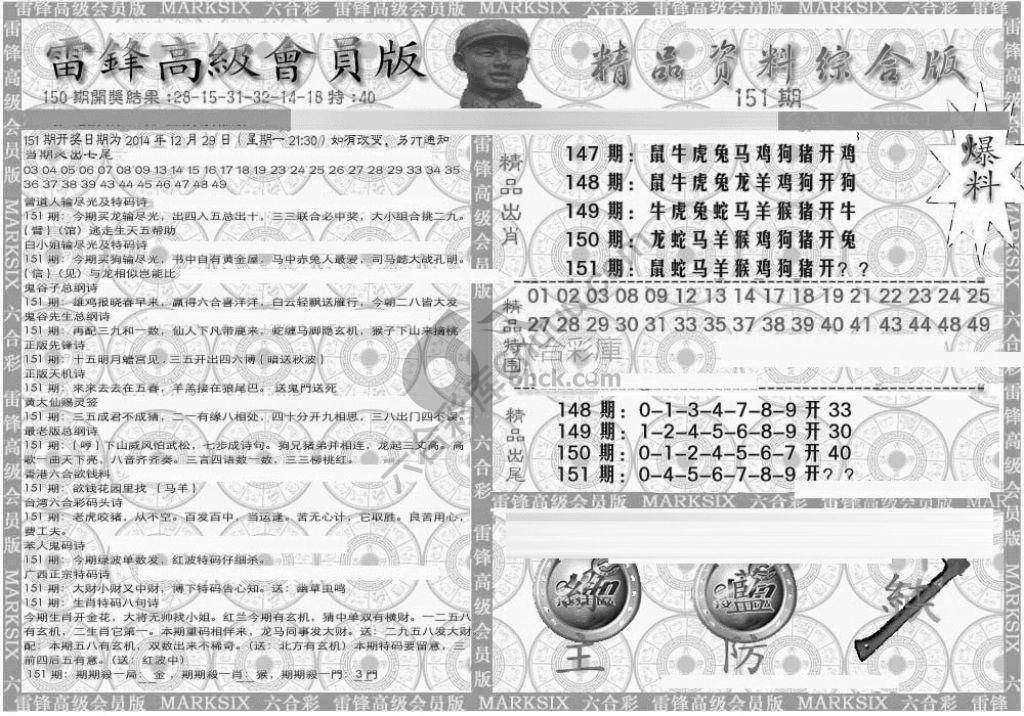 雷锋高级会员版 MARKSIX 六合彩 雷锋高级会员版 MARKSIX 六合彩 雷锋高级会员版 MARKSIX 六合彩 雷锋
雷鋒高級會員版
精品资料综合版
150 期開獎結果:28-15-31-32-14-18 特:40
151 期
爆料
151 期开奖日期为 2014 年 12 月 29 日（星期一 21:30）如有改变，另行通知
03 04 05 06 07 08 09 13 14 15 16 17 18 19 23 24 25 26 27 28 29 33 34 35
36 37 38 39 43 44 45 46 47 48 49
曾道人输尽光及特码诗
151 期：今期买龙输尽光，出四入五总出十，三三联合必中奖，大小组合挑二九。
{臂}（馆）逃走生天五帮助
白小姐输尽光及特码诗
151 期：今期买狗输尽光，书中自有黄金屋，马中赤兔人最爱，司马懿大战孔明。
{信}（见）与龙相似岂能比
鬼谷子总纲诗
151 期：雄鸡报晓春早来，赢得六合喜洋洋，白云轻飘送雁行，今朝二八皆大发
鬼谷先生总纲诗
151 期：再配三九和一数，仙人下凡带鹿来，蛇缠马脚隐玄机，猴子下山来摘桃
正版先锋诗
151 期：十五明月蟾宫见，三五开出四六博{暗送秋波}
正版天机诗
151 期：来来去去在五春，羊羔接在狼尾巴。送鬼門送死
黄大仙赐灵签
151 期：三五成君不成猜，二一有缘八相处，四十分开九相思，三八出门四不误。
最老版总纲诗
151 期：{哼}下山威风怕武松，七步成诗句。狗兄猪弟并相连，龙起三丈高。高
歌一曲天下亮，八音齐齐奏。三言四语数一数，三三柳桃红。
香港六合欲钱料
151 期：欲钱花园里找 {马羊}
台湾六合彩码头诗
151 期：老虎咬猪，从不空。百发百中，当运逢。苦无心计，它取胜。良苦用心，
费工夫。
本人鬼码诗
151 期：今期绿波单数发，红波特码仔细杀。
广西正宗特码诗
151 期：大财小财又中财，博下特码告心知。送：幽草虫鸣
151 期：生肖特码八句诗
今期生肖开金花，大将无帅找小姐。红兰今期有玄机，猜中单双有横财。一二五八
有玄机，二生肖它第一。本期重码相伴来，龙马同事发大财。送：二九五八发大财
配：本期五八有玄机，双数出来不稀奇。（送：北方有玄机）本期特码要留意，三
前四后五有意。（送：红波中）
151 期：期期殺一局：金，期期殺一肖：猴，期期殺一門：3 門
精品出肖
147 期：鼠牛虎兔马鸡狗猪开鸡
148 期：鼠牛虎兔龙羊鸡狗开狗
149 期：牛虎兔蛇马羊猴猪开牛
150 期：龙蛇马羊猴鸡狗猪开兔
151 期：鼠蛇马羊猴鸡狗猪开？？
精品特围
01 02 03 08 09 12 13 14 17 18 19 21 22 23 24 25
27 28 29 30 31 33 35 37 38 39 40 41 43 44 48 49
六合彩庫
精品出尾
148 期：0-1-3-4-7-8-9 开 33
149 期：1-2-4-5-6-8-9 开 30
150 期：0-1-2-4-5-6-7 开 40
151 期：0-4-5-6-7-8-9 开？？
雷锋高级会员版 MARKSIX 六合彩 雷锋高级会员版
主
防
雷锋高级会员版 MARKSIX 六合彩 雷锋高级会员版 MARKSIX 六合彩 雷锋高级会员版 MARKSIX 六合彩 雷锋